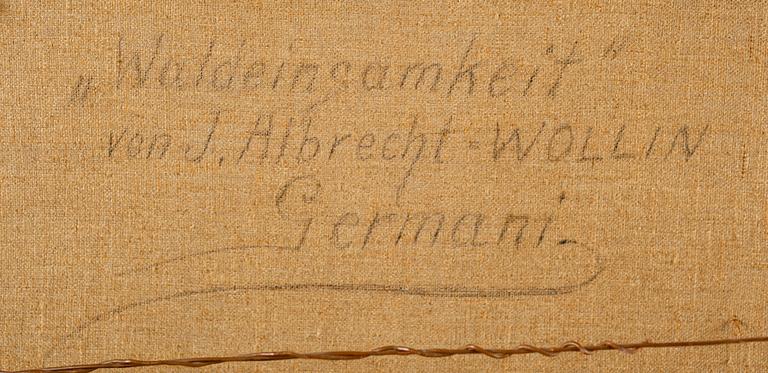 „Waldeinsamkeit"
von J. Albrecht-WOLLIN
Germani.